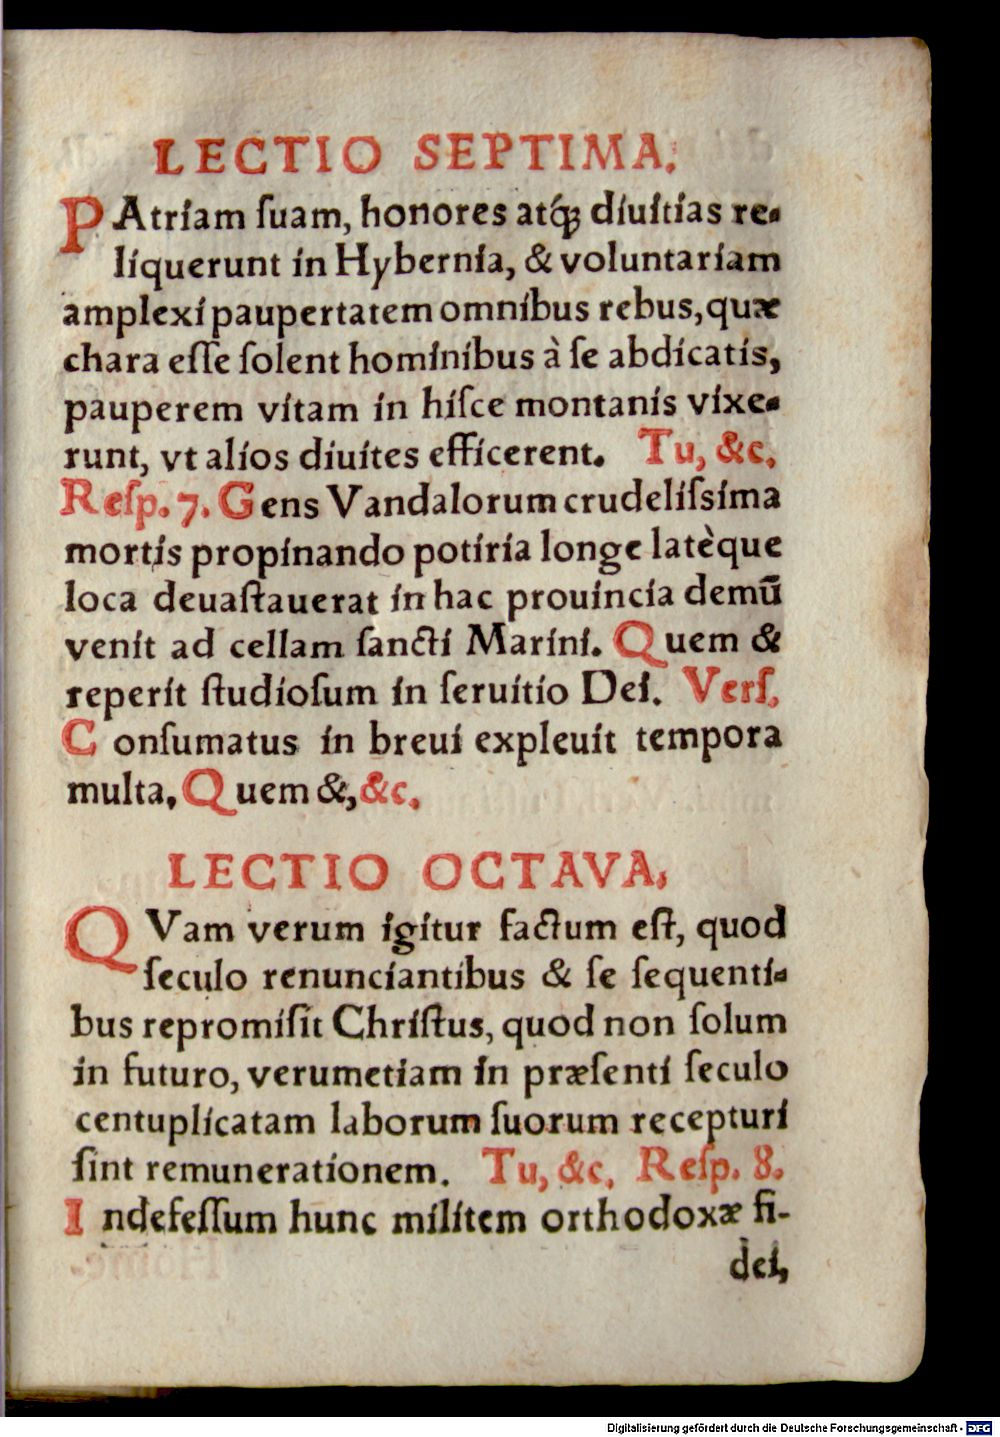 LECTIO SEPTIMA.
PAtriam ſuam, honores atq́ꝫ diuitias re-
liquerunt in Hybernia, & voluntariam
amplexi paupertatem omnibus rebus, quæ
chara eſſe ſolent hominibus à ſe abdicatis,
pauperem vitam in hiſce montanis vixe-
runt, vt alios diuites efficerent. Tu, &c.
Reſp. 7. Gens Vandalorum crudeliſsima
mortis propinando potiria longe latèque
loca deuaſtauerat in hac prouincia demū
venit ad cellam ſancti Marini. Quem &
reperit ſtudioſum in ſeruitio Dei. Verſ.
Conſumatus in breui expleuit tempora
multa, Quem &, &c.
LECTIO OCTAVA,
QVam verum igitur factum eſt, quod
ſeculo renunciantibus & ſe ſequenti-
bus repromiſit Chriſtus, quod non ſolum
in futuro, verumetiam in præſenti ſeculo
centuplicatam laborum ſuorum recepturi
ſint remunerationem. Tu, &c. Reſp. 8.
Indefeſſum hunc militem orthodoxæ fi-
dei,
Digitalisierung gefördert durch die Deutsche Forschungsgemeinschaft - DFG